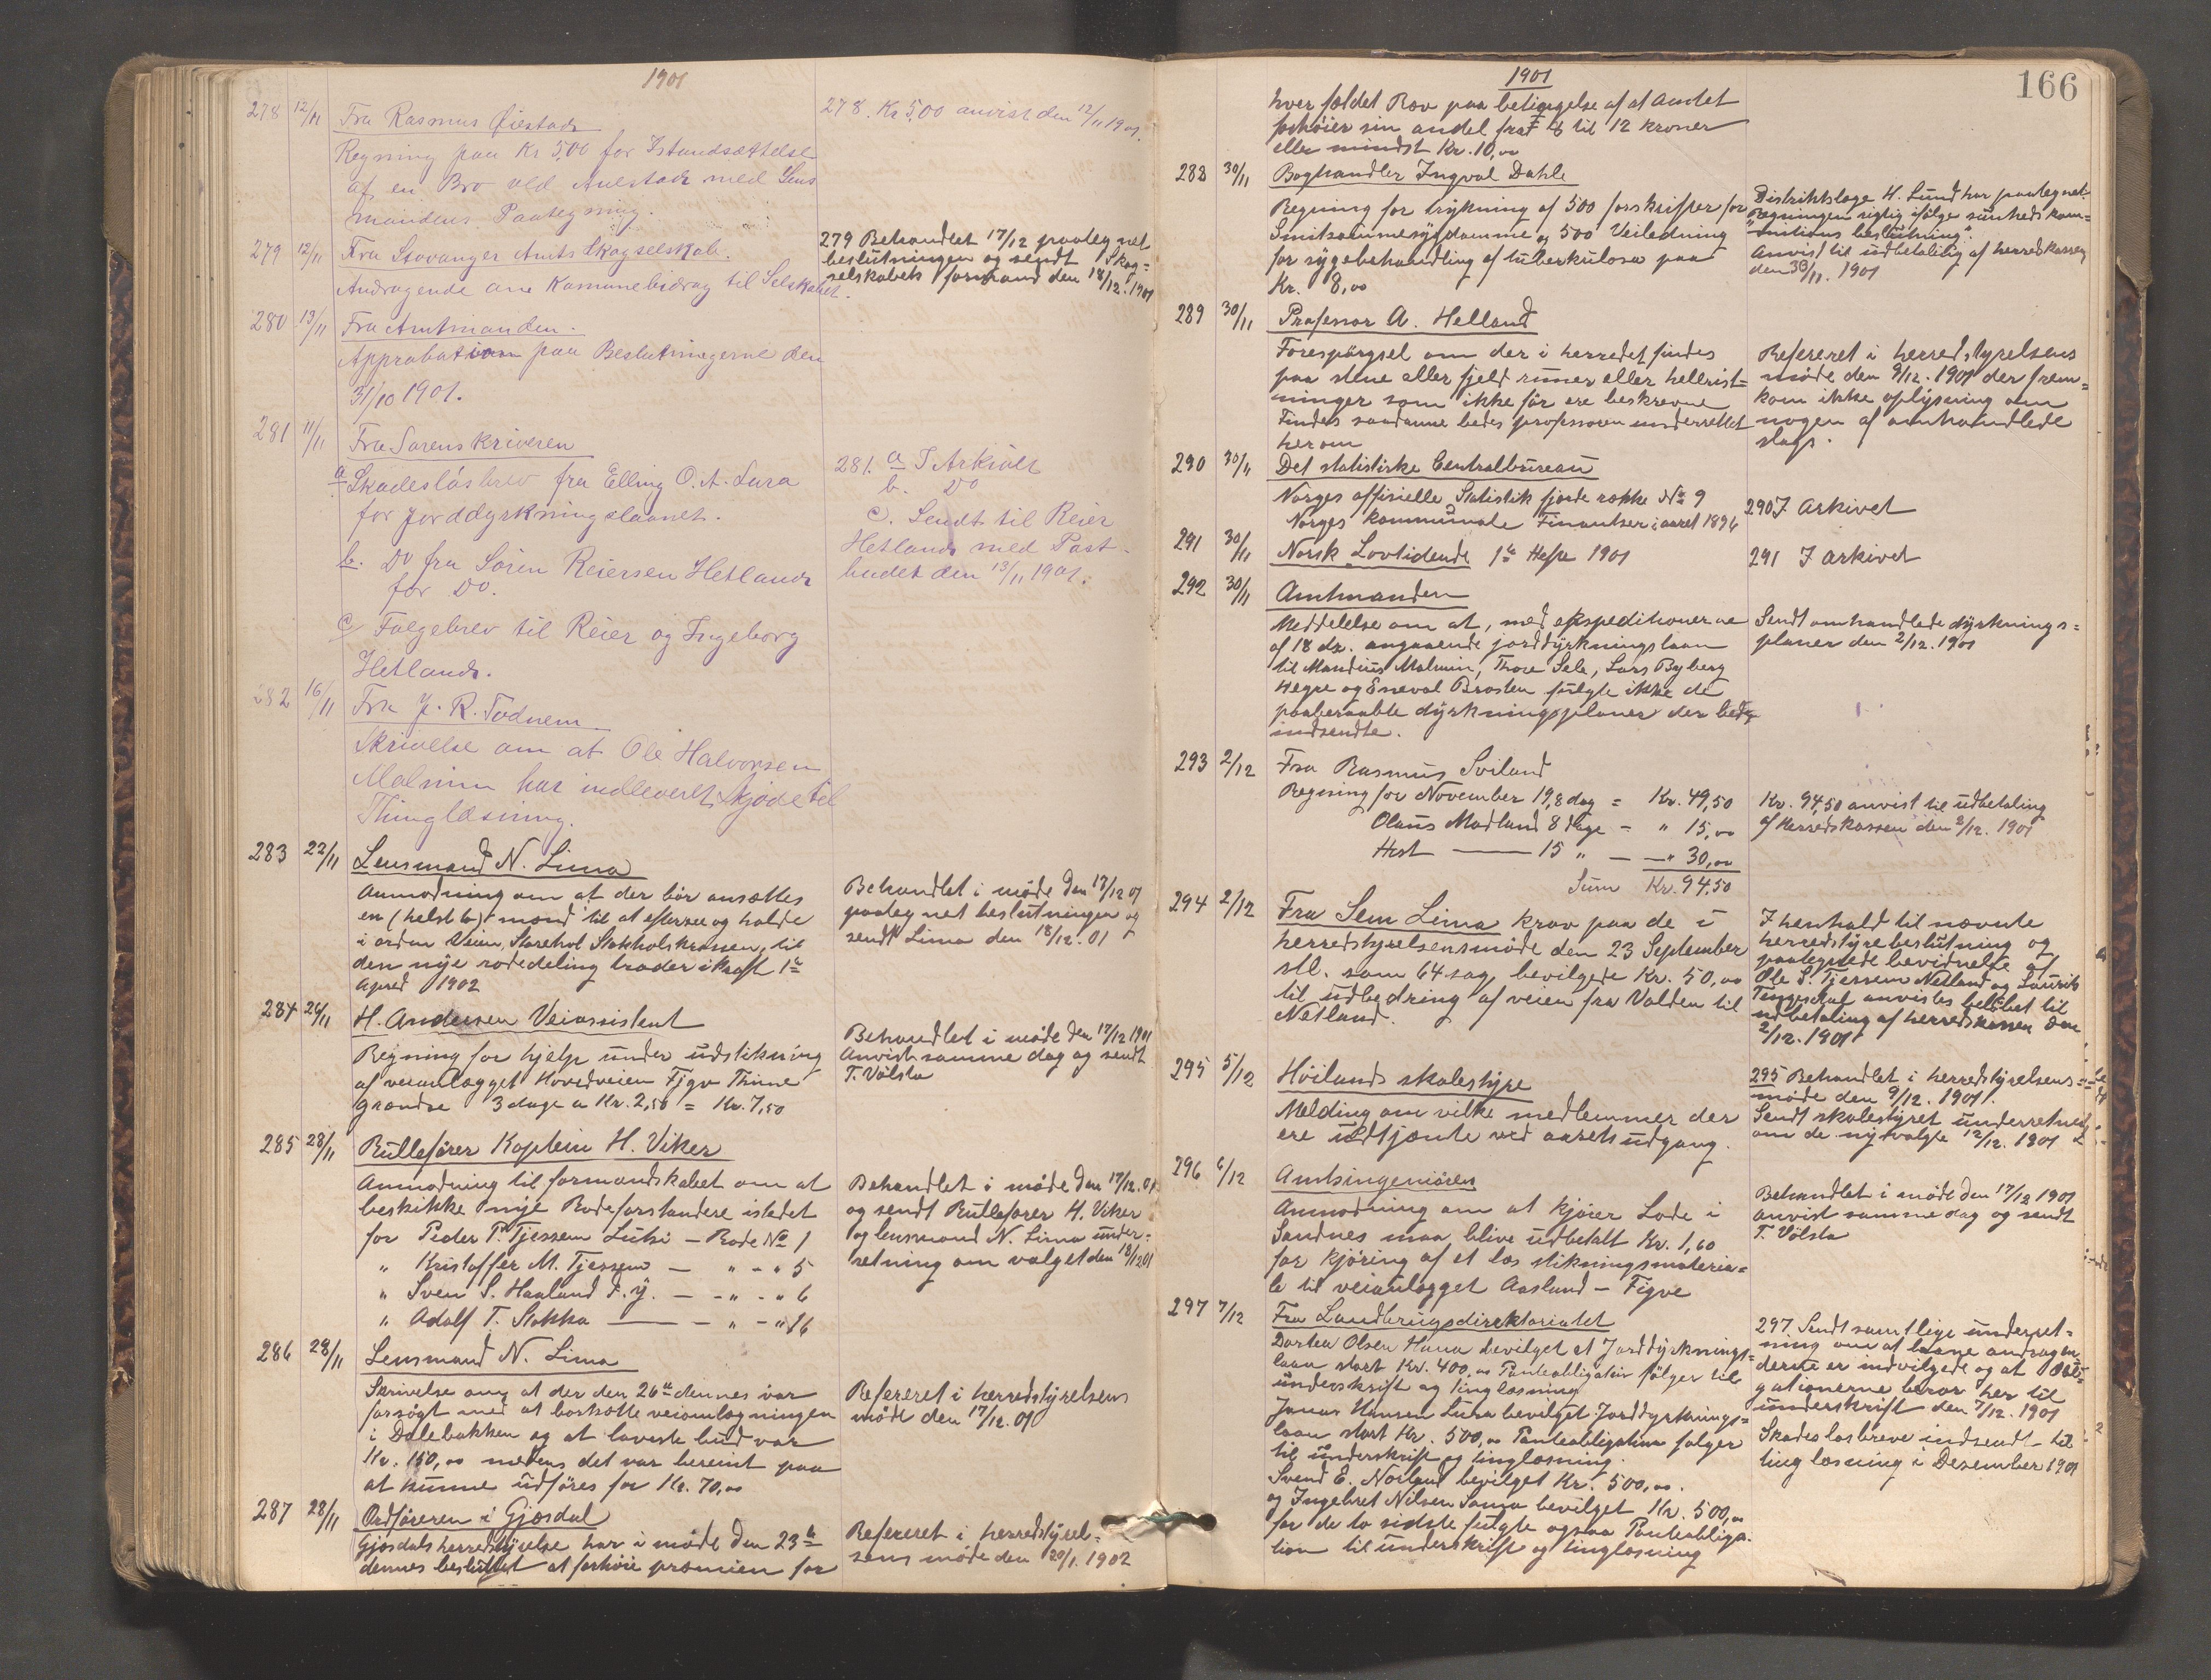 1901
278 12/11 Fra Rasmus Øiestad
Regning paa Kr 5,00 for Istandsættelse
af en Bro ved Auestad med Lens
mandens Paategning.
278. Kr 5,00 anvist den 12/11 1901.
279 12/11 Fra Stavanger Amts Skogselskab.
Andragende om Komunebidrag til Selskabet.
279 Behandlet 17/12 paategnet
beslutningen og sendt Skog=
selskabets formand den 18/12. 1901
280 13/11 Fra Amtmanden.
Approbation paa Beslutningerne den
31/10 1901.
281 11/11 Fra Sorenskriveren
a Skadesløsbrev fra Elling O. A. Lura
for Jorddyrkningslaanet.
b. Do fra Søren Reiersen Hetland
for Do.
c Følgebrev til Reier og Ingeborg
Hetland.
281. a I Arkivet
b. Do
c. Sendt til Reier
Hetland med Post-
budet den 13/11 1901.
282 16/11 Fra J. R. Todnem
Skrivelse om at Ole Halvorsen
Malmim har indleveret Skjøde til
Thinglæsning.
283 22/11 Lensmand N. Lima
Anmodning om at der bør ansættes
en (helst to) mænd til at efterse og holde
i orden Veien, Storehol Stokholskrossen, til
den nye rodedeling træder i kraft 1ste
April 1902
Behandlet i møde den 17/12 01
paategnet beslutningen og
sendt Lima den 18/12. 01
284 26/11 H. Andersen Veiassistent
Regning for hjelp under udstikning
af veianlægget Hovedveien Figve Thime
grændse 3 dage a Kr. 2,50 = Kr. 7,50
Behandlet i møde den 17/12 1901
Anvist samme dag og sendt
T. Vølsta
285 28/11 Rullefører Kaptein H. Viker
Anmodning til formandskabet om at
beskikke nye Rodeforstandere istedet
for Peder P. Tjessem Lutsi – Rode No 1
" Kristoffer M. Tjessem — " - " 5
" Sven S. Haaland d.y. — " - " 6
" Adolf T. Stokka — " - " 16
Behandlet i møde den 17/12. 01
og sendt Rullefører H. Viker
og lensmand N. Lima under-
retning om valget den 18/12 01
286 28/11 Lensmand N. Lima
Skrivelse om at der den 26de dennes var
forsøgt med at bortsætte veiomlægningen
i Dalebakken og at laveste bud var
Kr. 150,00 medens det var beremt paa
at kunne udføres for Kr. 70,00
Refereret i herredstyrelsens
møde den 17/12. 01
287 28/11 Ordføreren i Gjesdal
Gjesdals herredstyrelse har i møde den 23de
dennes besluttet at forhøie præmien for
Refereret i herredstyrel-
sens møde den 20/1. 1902
1901
166
hver fældet Ræv paa betingelse af at Amtet
forhøier sin andel fra 8 til 12 kroner
eller mindst Kr. 10,00
288 30/11 Boghandler Ingval Dahle
Regning for trykning af 500 forskrifter for
Smitsommesygdomme og 500 Veiledning
for sygebehandling af tuberkulose paa
Kr. 8,00
Distriktslæge H. Lund har paategnet
"Regningen rigtig ifølge sundhedskom=
missions beslutning".
Anvist til udbetaling af herredskassen
den 30/11. 1901
289 30/11 Professor A. Helland
Forespørgsel om der i herredet findes
paa stene eller fjeld runer eller hellrist=
ninger som ikke før ere beskrevne
Findes saadanne bedes professoren underrettet
herom
Refereret i herredstyrelsens
møde den 9/12. 1901 der frem=
kom ikke oplysning om
nogen af omhandlede
slags.
290 30/11 Det statistiske Centralbureau
Norges offisielle Statistik fjerde række No 9
Norges kommunale Finantser i aaret 1896
290 I Arkivet
291 30/11 Norsk Lovtidende 1ste Hefte 1901
291 I arkivet
292 30/11 Amtmanden
Meddelelse om at, med ekspeditionerne
af 18 ds. angaaende jorddyrkningslaan
til Mandius Malmin, Thore Sele, Lars Byberg
Hegre og Eneval Brosten fulgte ikke de
paaberaabte dyrkningsplaner der bedes
indsendte.
Sendt omhandlede dyrknings=
planer den 2/12. 1901
293 2/12 Fra Rasmus Sviland
Regning for November 19,8 dag = Kr. 49,50
Olaus Madland 8 dage – " 15,00
Hest — 15 " — " 30,00
Sum Kr. 94,50
Kr. 94,50 anvist til udbetaling
af Herredskassen den 2/12. 1901
294 2/12 Fra Sem Lima krav paa de i
herredstyrelsensmøde den 23 September
stl. som 64 sag, bevilgede Kr. 50,00
til udbedring af veien fra Valden til
Netland.
I henhold til nævnte
herredstyrebeslutning og
paategnede bevidnelse af
Ole S. Tjessem Netland og Laurits
anvistes beløbet til
udbetaling af herredskassen den
2/12. 1901
295 5/12 Høilands skolestyre
Melding om vilke medlemmer der
ere udtjente ved aarets udgang.
295 Behandlet i herredstyrelsens=
møde den 9/12. 1901.
Sendt skolestyret underretning
om de nyvalgte 12/12. 1901
296 6/12 Amtsingeniøren
Anmodning om at kjører Lode i
Sandnes maa blive udbetalt Kr. 1,60
for kjøring af et læs stikningsmateria=
le til veianlægget Aasland – Figve
Behandlet i møde den 17/12 1901
anvist samme dag og sendt
T. Vølsta
297 7/12 Fra Landbrugsdirektoriatet
Dortea Olsen Hana bevilget et Jorddyrknings=
laan stort Kr. 400,00 Panteobligation følger til
underskrift og tinglæsning
Jonas Hansen Lura bevilget Jorddyrknings=
laan stort Kr. 500,00 Panteobligation følger
til underskrift og tinglæsning.
Svend E. Norland bevilget Kr. 500,00.
og Ingebret Nilsen Soma bevilget Kr. 500,00
for de to sidste fulgte ogsaa Panteobliga-
tion til underskrift og tinglæsning
297 Sendt samtlige underret=
ning om at laane andragen
derne er indvilgede og at Obli=
gationerne beror her til
underskrift den 7/12. 1901
Skadesløsbreve indsendt til
tinglæsning i Desember 1901